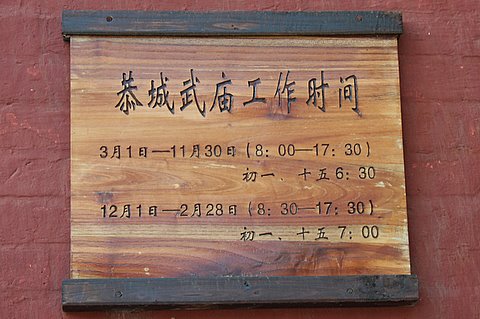 恭城武庙工作时间
3月1日—11月30日(8：00—17：30)
初一、十五6：30
12月1日—2月28日(8：30—17：30)
初一、十五7：00